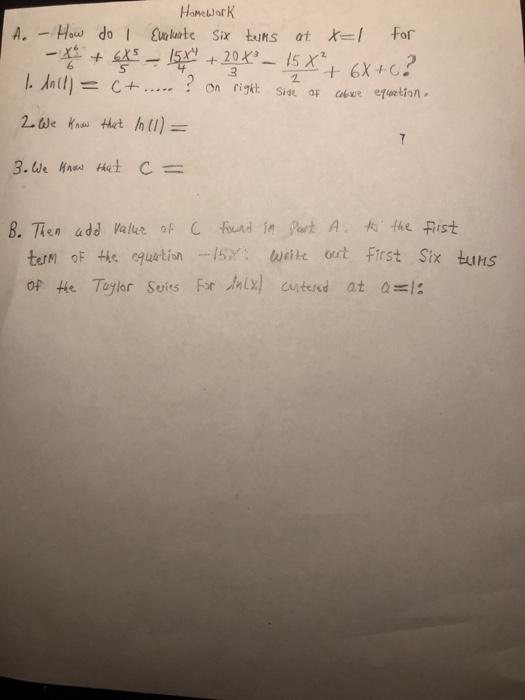 Homework
A. - How do I Evaluate Six terms at X=1 for
-X⁶/6 + 6X⁵/5 - 15X⁴/4 + 20X³/3 - 15X²/2 + 6X+C?
1. ln(1) = C+..... ? on right side of above equation.
2. We Know that ln(1) =
3. We Know that C =
B. Then add Value of C found in Part A. to the first
term of the equation -15X: Write out First Six terms
of the Taylor Series For ln(x) centered at a=1: